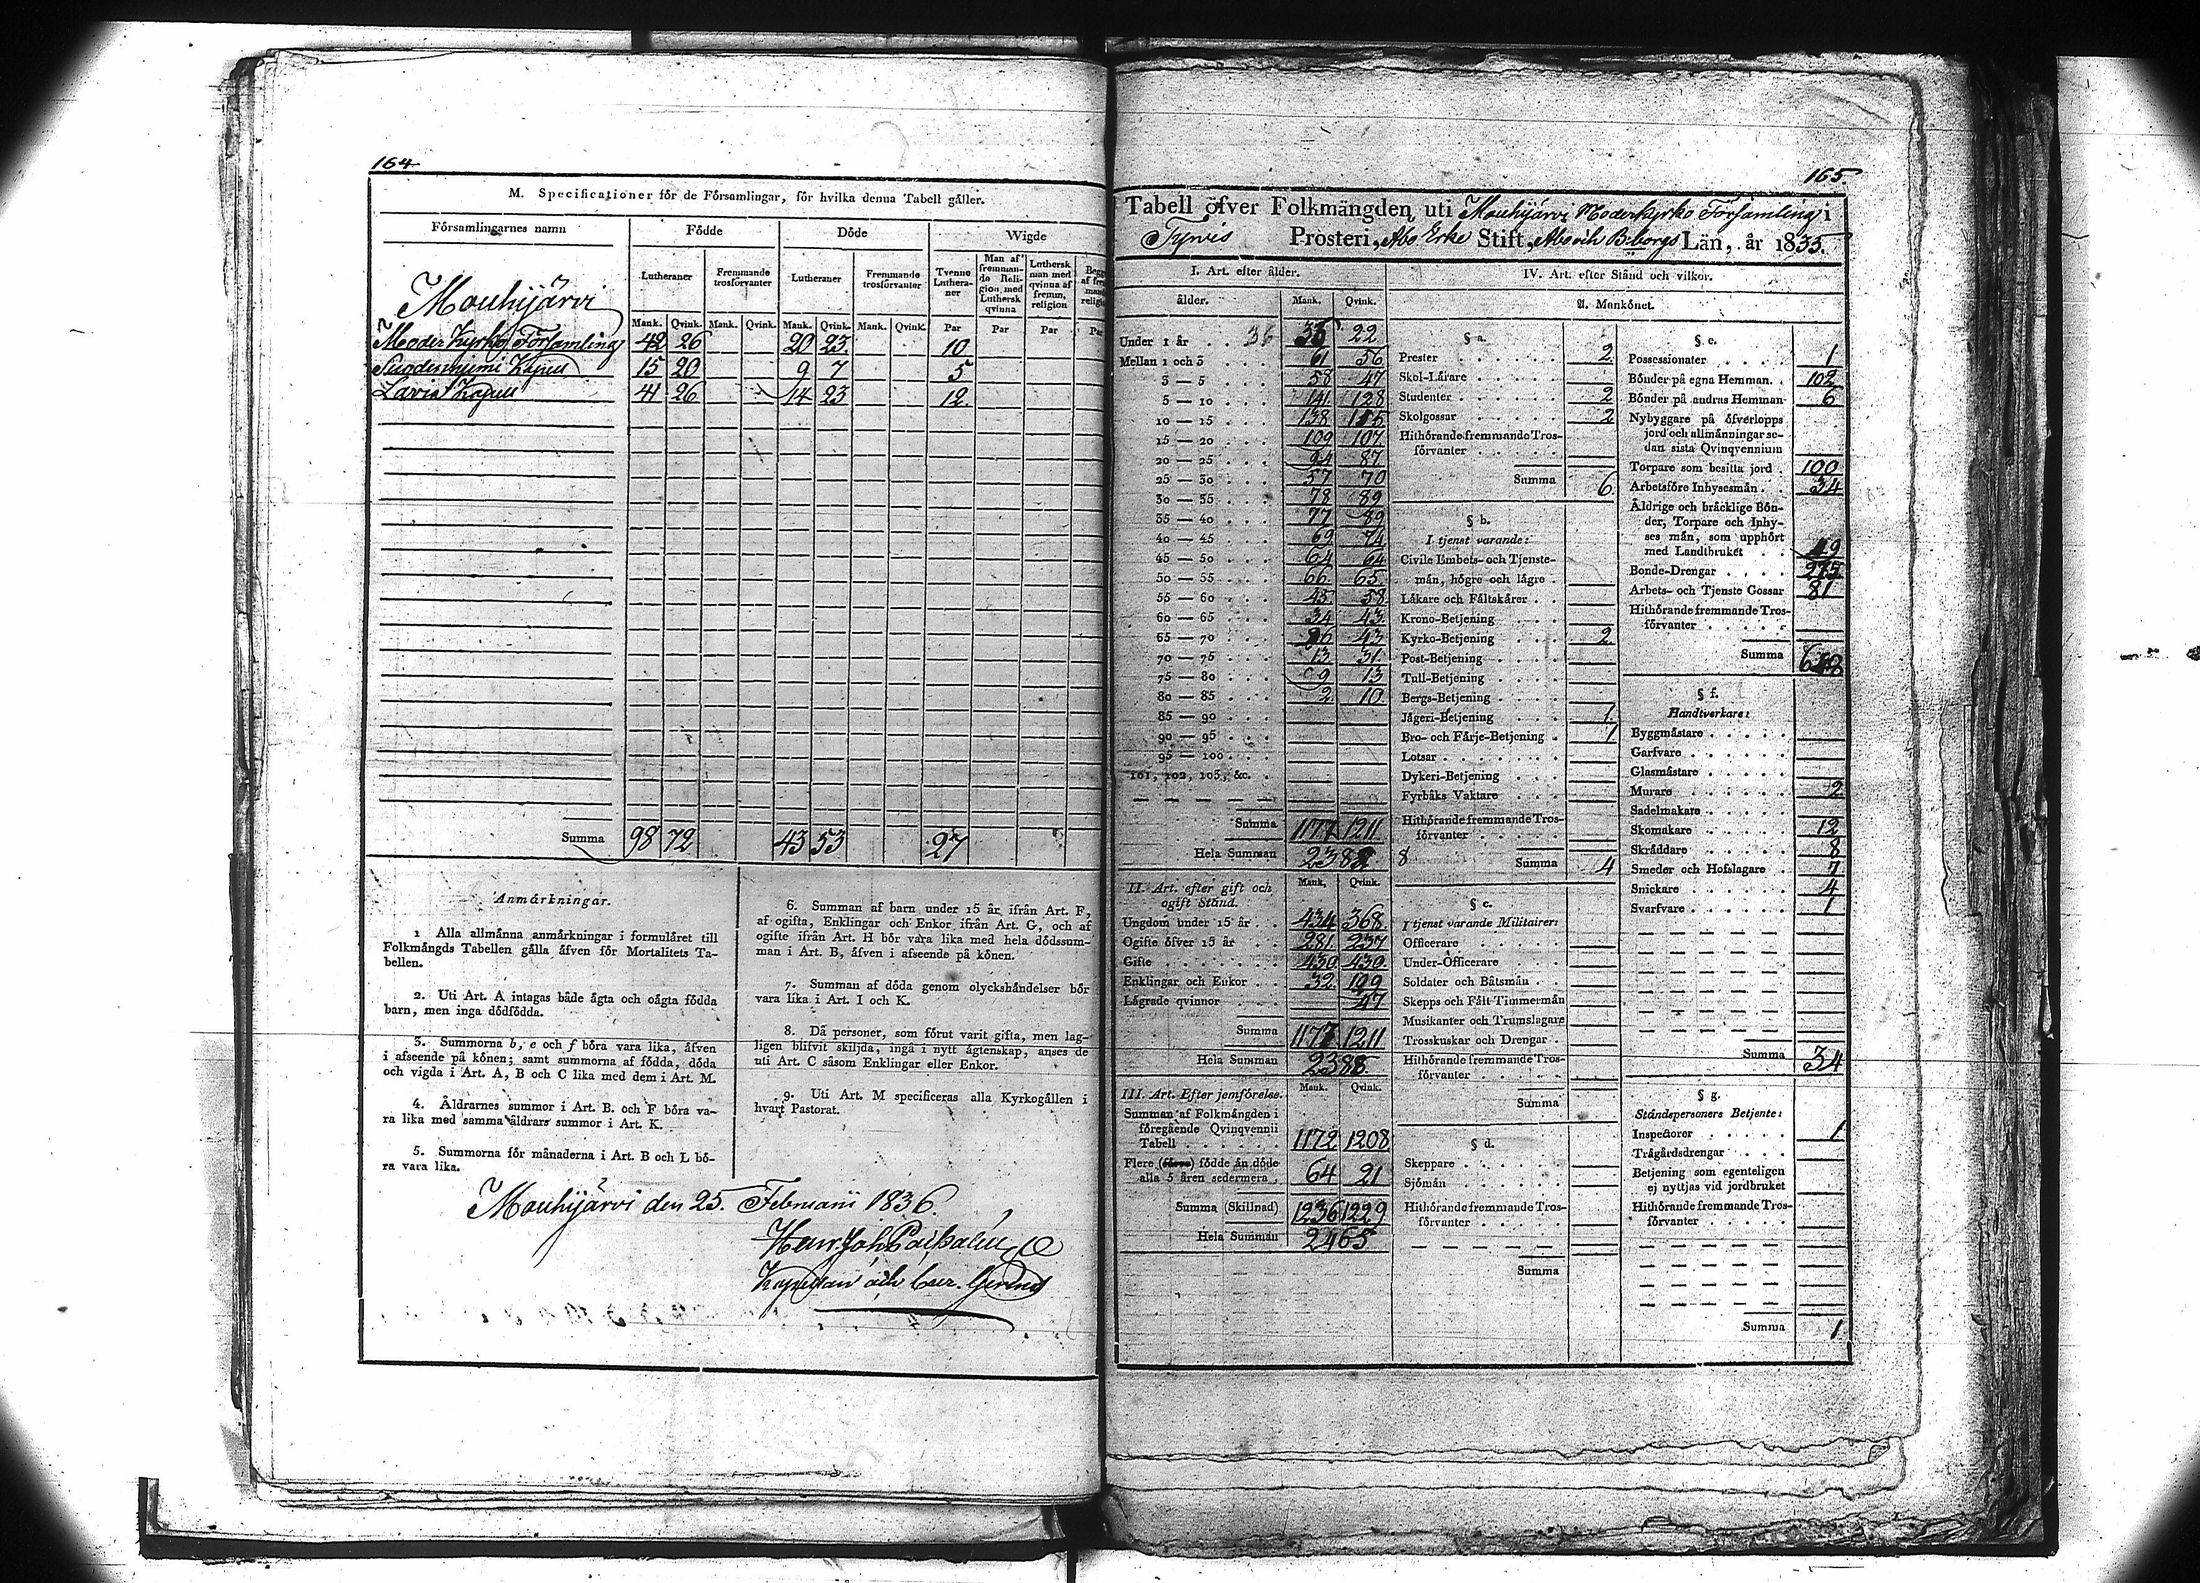 164
M. Specificationer för de Församlingar, för hvilka denna Tabell gäller.
Församlingarnes namn Födde Döde Wigde
Lutheraner Fremmande trosförvanter Lutheraner Fremmande trosförvanter Tvenne Lutheraner Man af fremmande Religion med Luthersk qvinna Luthersk man med qvinna af fremm. religion
Mank. Qvink. Mank. Qvink. Mank. Qvink. Mank. Qvink. Par Par Par Par
Mouhijärvi
Moder Kyrko Församling 42 26 20 23 10
Suodenniemi Kapell 15 20 9 7 5
Lavia Kapell 41 26 14 23 12
Summa 98 72 43 53 27
Anmärkningar.
1 Alla allmänna anmärkningar i formuläret till
Folkmängds Tabellen gälla äfven för Mortalitets Ta-
bellen.
2. Uti Art. A intagas både ägta och oägta födda
barn, men inga dödfödda.
3. Summorna b, e och f böra vara lika, äfven
i afseende på könen; samt summorna af födda, döda
och vigda i Art. A, B och C lika med dem i Art. M.
4. Åldrarnes summor i Art. B. och F böra va-
ra lika med samma åldrars summor i Art. K.
5. Summorna för månaderna i Art. B och L bö-
ra vara lika.
6. Summan af barn under 15 år ifrån Art. F,
af ogifta, Enklingar och Enkor ifrån Art. G, och af
ogifte ifrån Art. H bör vara lika med hela dödssum-
man i Art. B, äfven i afseende på könen.
7. Summan af döda genom olyckshändelser bör
vara lika i Art. I och K.
8. Då personer, som förut varit gifta, men lag-
ligen blifvit skiljda, ingå i nytt ägtenskap, anses de
uti Art. C såsom Enklingar eller Enkor.
9. Uti Art. M specificeras alla Kyrkogällen i
hvart Pastorat.
Mouhijärvi den 25. Februarii 1836.
Kapellan och
165.
Tabell öfver Folkmängden uti Mouhijärvi Moderkyrko Församling i
Tyrvis Prosteri, Åbo Erke Stift, Åbo och B:borgs Län, år 1835.
I. Art. efter ålder.
ålder. Mank. Qvink.
Under 1 år 36 22
Mellan 1 och 3 61 56
3 — 5 58 47
5 — 10 141 128
10 — 15 138 115
15 — 20 109 107
20 — 25 94 87
25 — 30 57 70
30 — 35 78 89
35 — 40 77 89
40 — 45 69 74
45 — 50 64 64
50 — 55 66 65
55 — 60 45 58
60 — 65 34 43
65 — 70 26 43
70 — 75 13 31
75 — 80 9 13
80 — 85 2 10
85 — 90
90 — 95
95 — 100
101, 102, 103, &c.
Summa 1177 1211
Hela Summan 2388 8
II. Art. efter gift och ogift Stånd. Mank. Qvink.
Ungdom under 15 år 434 368
Ogifte öfver 15 år 281 257
Gifte 430 430
Enklingar och Enkor 32 109
Lägrade qvinnor 47
Summa 1177 1211
Hela Summan 2388
III. Art. Efter jemförelse. Mank. Qvink.
Summan af Folkmängden i
föregående Qvinqvennii
Tabell 1172 1208
Flere födde än döde
alla 5 åren sedermera 64 21
Summa (Skillnad) 1236 1229
Hela Summan 2465
IV. Art. efter Stånd och vilkor.
A. Mankönet.
§ a.
Prester 2
Skol-Lärare
Studenter 2
Skolgossar 2
Hithörande fremmande Tros-
förvanter
Summa 6
§ b.
I tjenst varande:
Civile Embets- och Tjenste-
män, högre och lägre
Läkare och Fältskärer
Krono-Betjening
Kyrko-Betjening 2
Post-Betjening
Tull-Betjening
Bergs-Betjening
Jägeri-Betjening 1
Bro- och Färje-Betjening 1
Lotsar
Dykeri-Betjening
Fyrbåks Vaktare
Hithörande fremmande Tros-
förvanter
Summa 4
§ c.
I tjenst varande Militairer:
Officerare
Under-Officerare
Soldater och Båtsmän
Skepps och Fält Timmermän
Musikanter och Trumslagare
Trosskuskar och Drengar
Hithörande fremmande Tros-
förvanter
Summa
§ d.
Skeppare
Sjömän
Hithörande fremmande Tros-
förvanter
Summa
§ e.
Possessionater 1
Bönder på egna Hemman 102
Bönder på andras Hemman 6
Nybyggare på öfverlopps
jord och allmänningar se-
dan sista Qvinqvennium
Torpare som besitta jord 100
Arbetsföre Inhysesmän 34
Åldrige och bräcklige Bön-
der, Torpare och Inhy-
ses män, som upphört
med Landtbruket 49
Bonde-Drengar 275
Arbets- och Tjenste Gossar 81
Hithörande fremmande Tros-
förvanter
Summa
§ f.
Handtverkare:
Byggmästare
Garfvare
Glasmästare
Murare 2
Sadelmakare
Skomakare 12
Skräddare 8
Smeder och Hofslagare 7
Snickare 4
Svarfvare 1
Summa 34
§ g.
Ståndspersoners Betjente:
Inspector 1
Trägårdsdrengar
Betjening som egenteligen
ej nyttjas vid jordbruket
Hithörande fremmande Tros-
förvanter
Summa 1